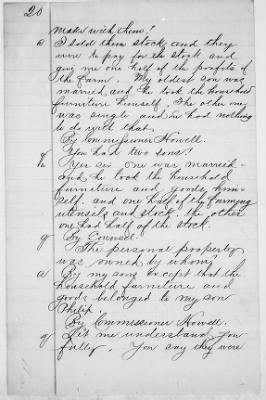 20
make with them?
a I sold them stock and they
were to pay for the stock and
give me one half of the profits of
the farm. My oldest son was
married and he took the household
furniture himself. The other one
was single and he had nothing
to do with that.
By Commissioner Howell.
You had two sons?
Yes sir one was married
and he took the household
furniture and goods him-
self, and one half of the farming
utensils and stock. the other
one had half of the stock.
By Counsel.
q The personal property
was owned by whom?
a By my sons except that the
household furniture and
goods belonged to my son
Philip.
By Commissioner Howell.
q Let me understand you
fully. You say they were